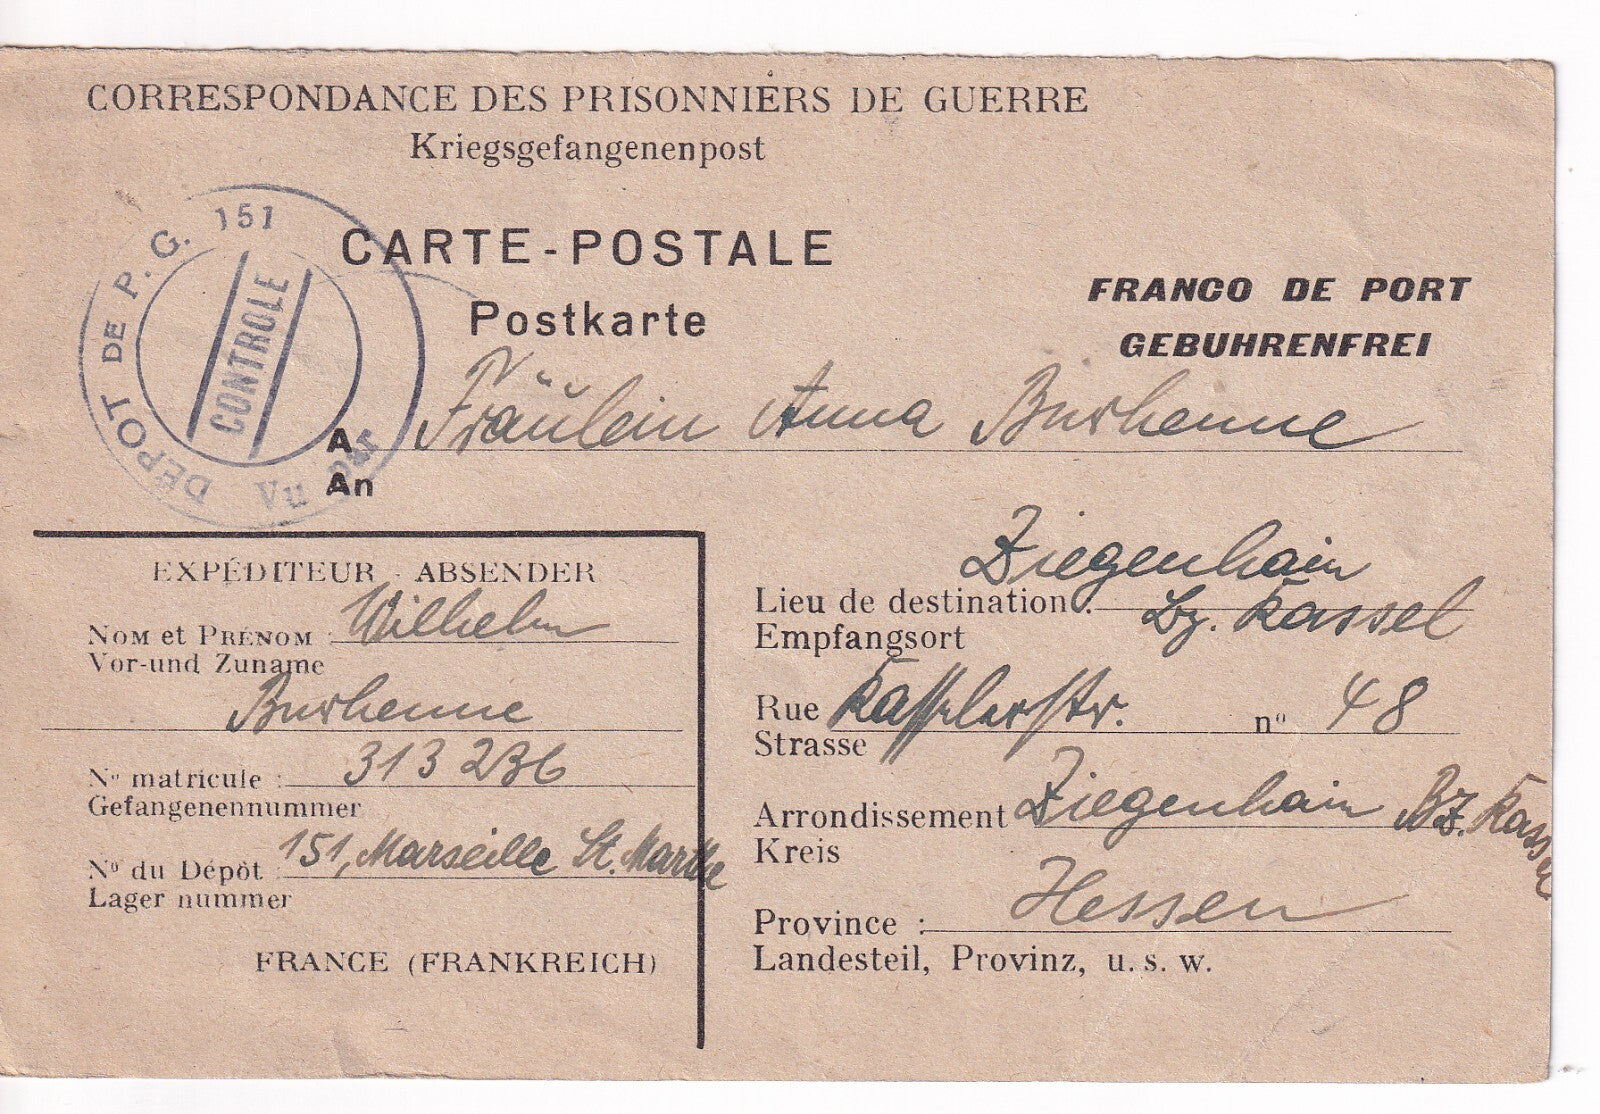 CORRESPONDANCE DES PRISONNIERS DE GUERRE
Kriegsgefangenenpost
DÉPOT DE P.G. 151
CONTROLE
Vu par
CARTE-POSTALE
Postkarte
FRANCO DE PORT
GEBUHRENFREI
A Fräulein Anna Burhenne
An
EXPÉDITEUR - ABSENDER
NOM et PRÉNOM : Wilhelm
Vor-und Zuname
Burhenne
No matricule : 313236
Gefangenennummer
No du Dépôt : 151, Marseille St. Marthe
Lager nummer
FRANCE (FRANKREICH)
Ziegenhain
Lieu de destination : Bz. Kassel
Empfangsort
Rue Kasslerstr. no 48
Strasse
Arrondissement Ziegenhain Bz. Kassel
Kreis
Province : Hessen
Landesteil, Provinz, u. s. w.